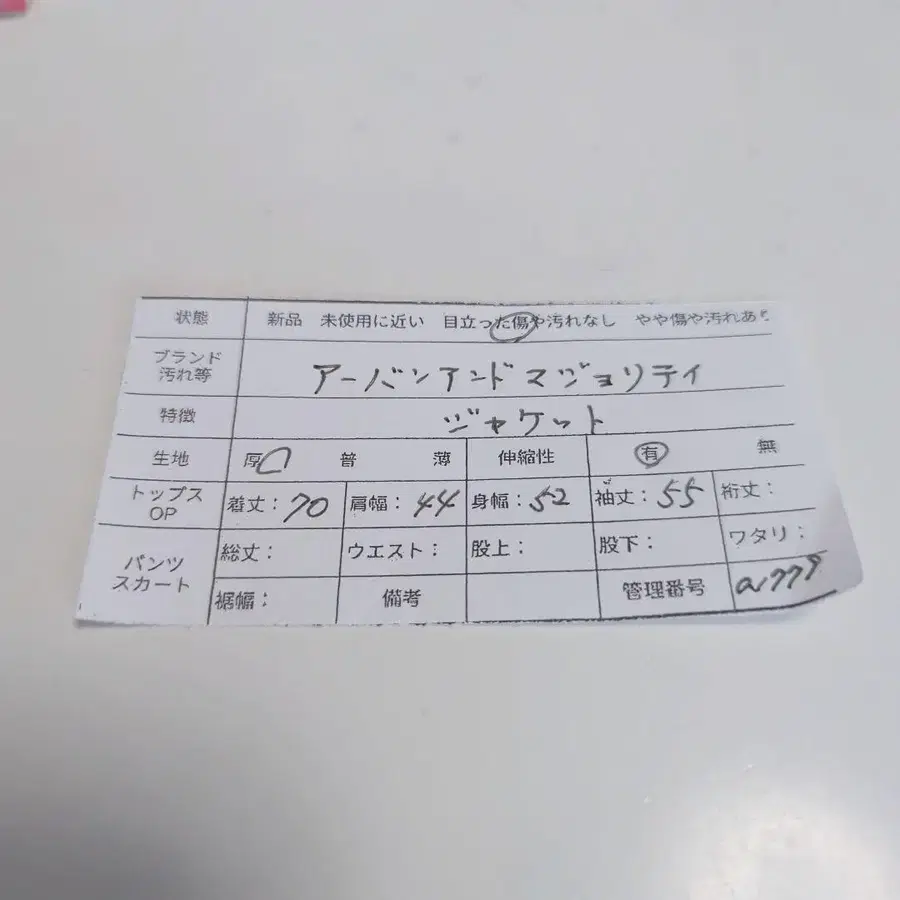 状態 新品 未使用に近い 目立った傷や汚れなし やや傷や汚れあ
ブランド
汚れ等 アーバンアンドマジョリティ
特徴 ジャケット
生地 厚 普 薄 伸縮性 有 無
トップス
OP 着丈：70 肩幅：44 身幅：52 袖丈：55 裄丈：
パンツ
スカート 総丈： ウエスト： 股上： 股下： ワタリ：
裾幅： 備考 管理番号